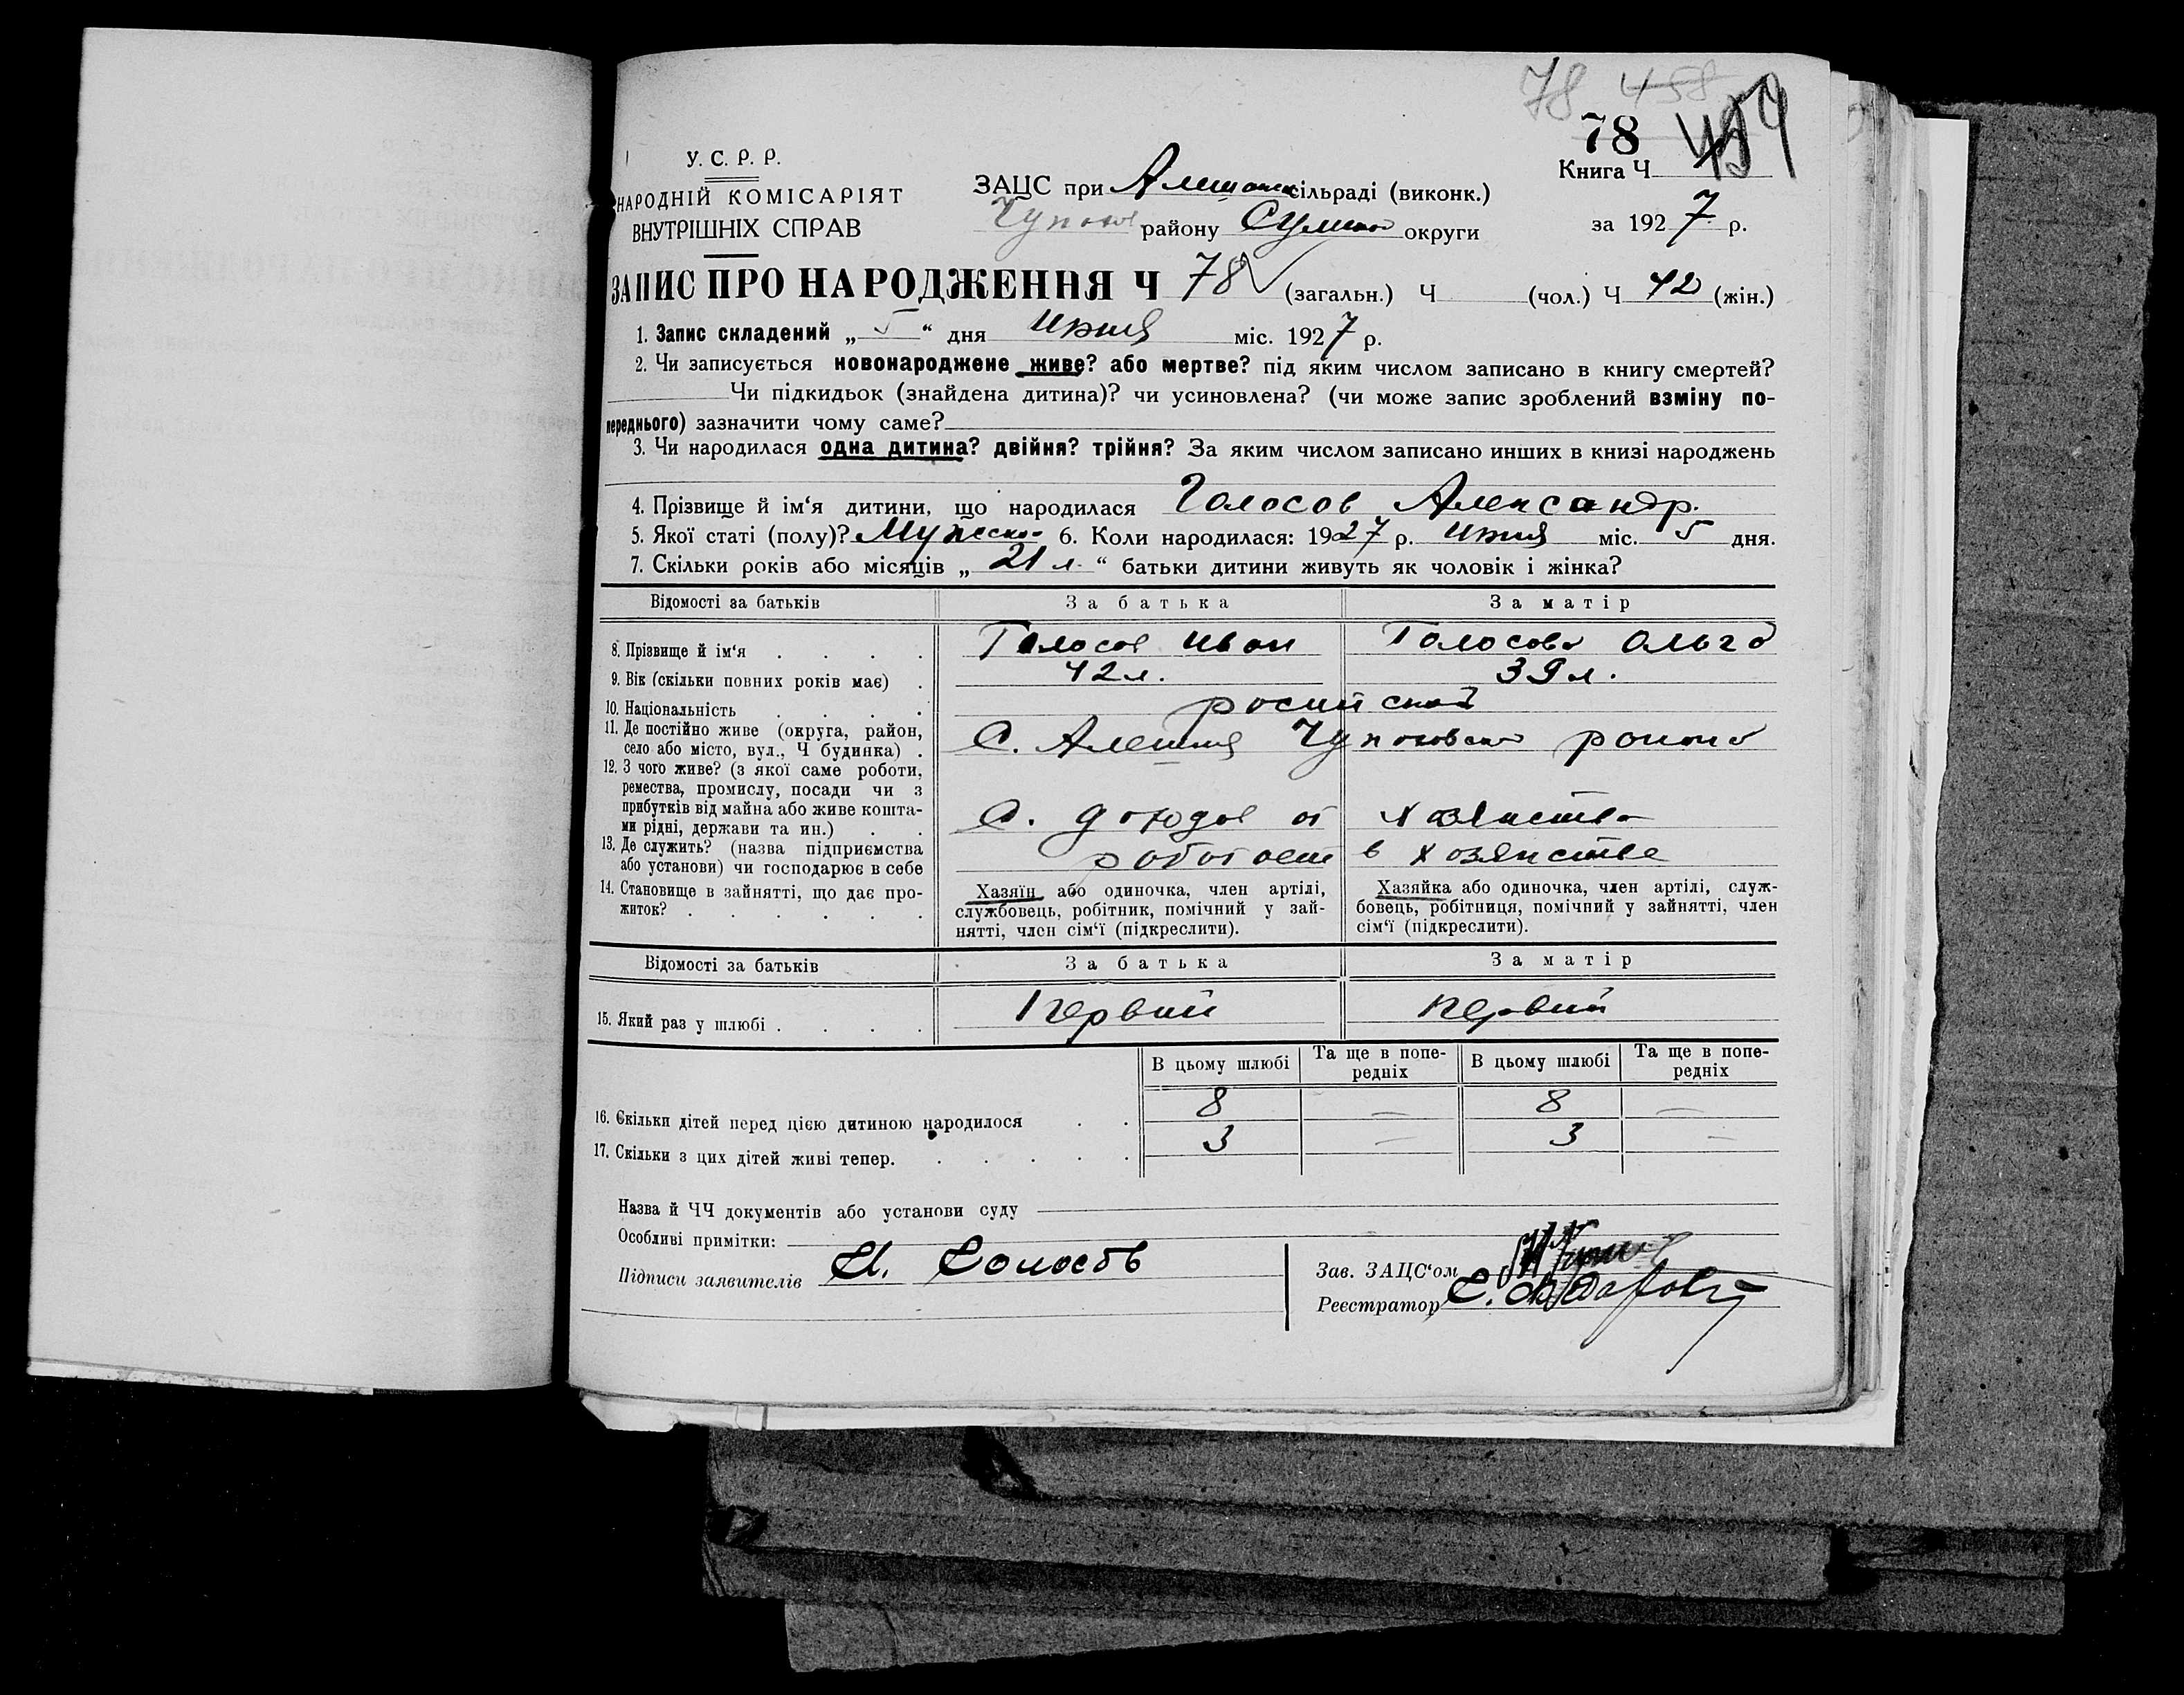 78 458
78 459
У. С. Р. Р.
НАРОДНІЙ КОМІСАРІЯТ
ВНУТРІШНІХ СПРАВ
ЗАЦС при сільраді (виконк.)
району округи
Книга Ч
за 1927 р.
ЗАПИС ПРО НАРОДЖЕННЯ Ч 78 (загальн.) Ч (чол.) Ч 42 (жін.)
1. Запис складений „ 5 “ дня міс. 1927 р.
2. Чи записується новонароджене живе? або мертве? під яким числом записано в книгу смертей?
Чи підкидьок (знайдена дитина)? чи усиновлена? (чи може запис зроблений взміну по-
переднього) зазначити чому саме?
3. Чи народилася одна дитина? двійня? трійня? За яким числом записано инших в книзі народжень
4. Прізвище й ім‘я дитини, що народилася Голосов Александр.
5. Якої статі (полу)? Мужеско 6. Коли народилася: 1927 р. міс. 5 дня.
7. Скільки років або місяців „ 21 л. “ батьки дитини живуть як чоловік і жінка?
Відомості за батьків За батька За матір
8. Прізвище й ім‘я Голосов Иван Голосова Ольга
9. Вік (скільки повних років має) 42 л. 39 л.
10. Національність
11. Де постійно живе (округа, район,
село або місто, вул., Ч будинка) С. Алешня
12. З чого живе? (з якої саме роботи,
ремества, промислу, посади чи з
прибутків від майна або живе кошта-
ми рідні, держави та ин.) С. доходов от хозяйства
13. Де служить? (назва підприємства
або установи) чи господарює в себе работает в хозяйстве
14. Становище в зайнятті, що дає про-
житок?
Хазяїн або одиночка, член артілі,
службовець, робітник, помічний у зай-
нятті, член сім‘ї (підкреслити).
Хазяйка або одиночка, член артілі, служ-
бовець, робітниця, помічний у зайнятті, член
сім‘ї (підкреслити).
Відомості за батьків За батька За матір
15. Який раз у шлюбі Первий Первий
В цьому шлюбі Та ще в попе-
редніх В цьому шлюбі Та ще в попе-
редніх
16. Скільки дітей перед цією дитиною народилося 8 — 8 —
17. Скільки з цих дітей живі тепер. 3 — 3 —
Назва й ЧЧ документів або установи суду
Особливі примітки:
Підписи заявителів И. Голосовъ
Зав. ЗАЦС‘ом
Реєстратор